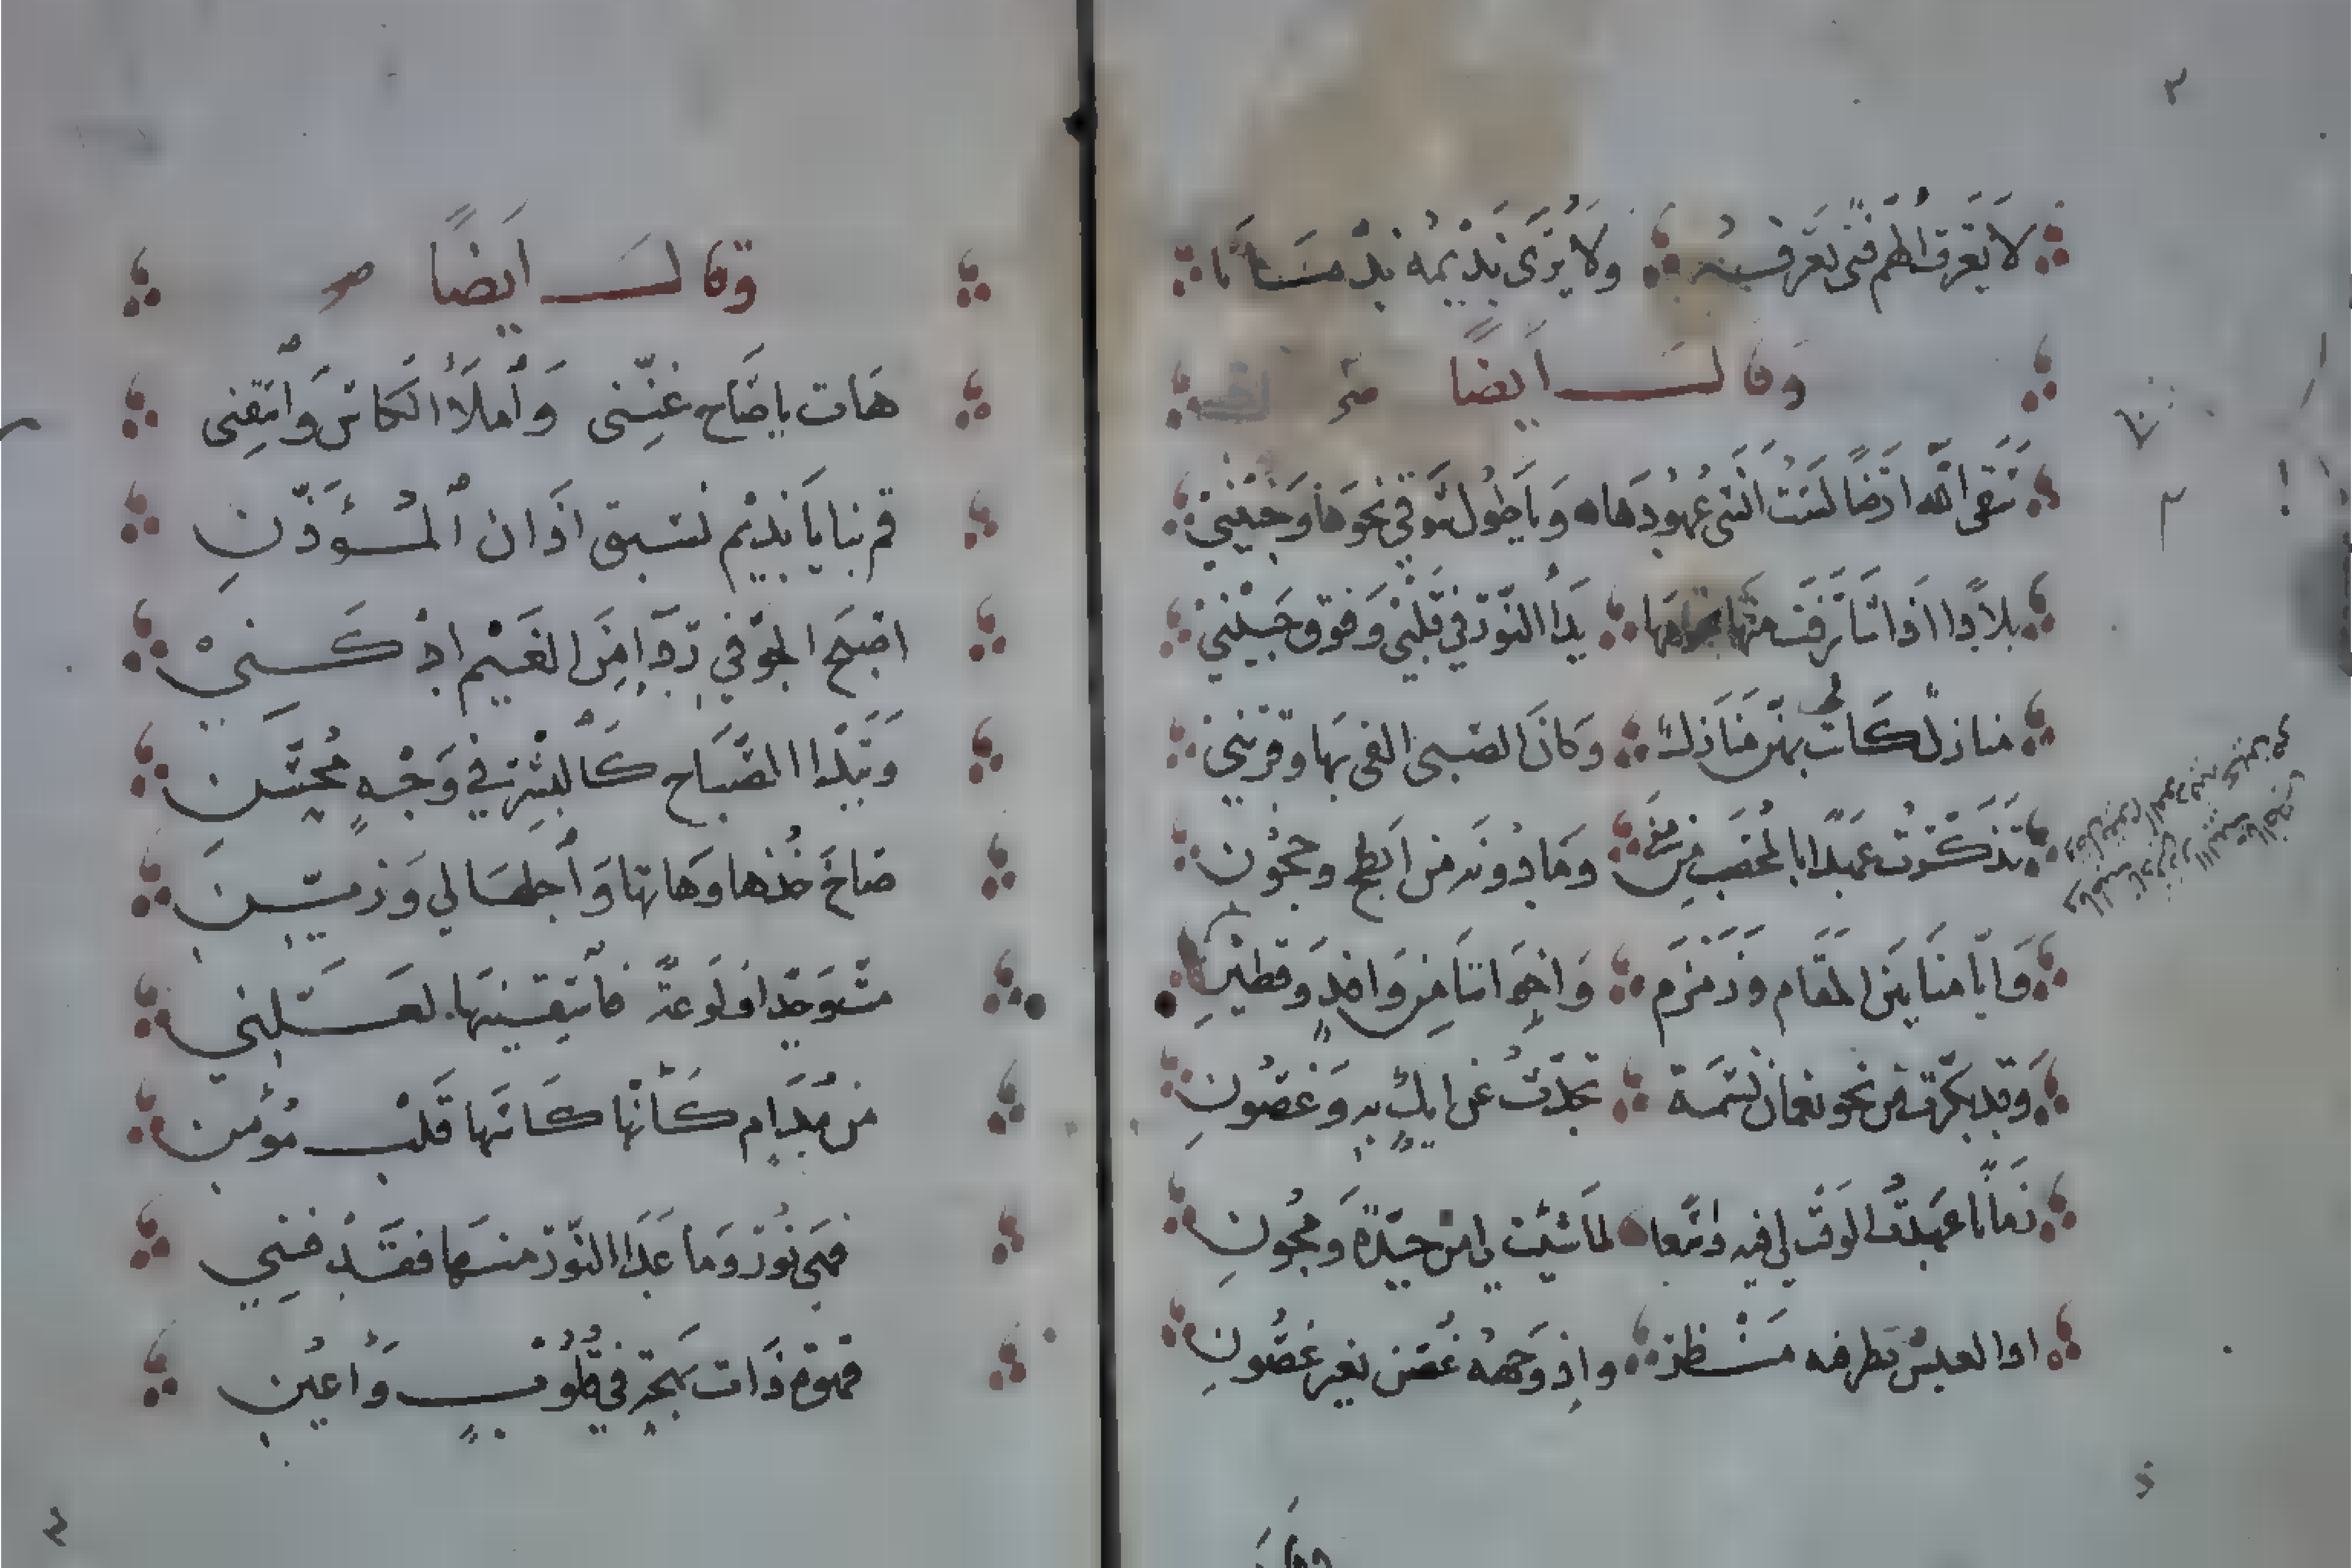 ٣
لا يعرف الهم فتى تعرفنه ولا يرى نديمه ندمانا
وقال ايضا
سقى الله ارضا لست انسى عهودها وياطول شوقي نحوها وحنيني
بلادا اذا شارفت منها بدا النور في قلبي وفوق جبيني
منازل كانت لي بهن منازل وكان الصبى الفي بها وقريني
تذكرت عهدا بالمحصب من منى وما دونه من ابطح وحجون
وايامنا بين المقام وزمزم واخواننا من وافد وقطين
وقد بكرت من نحو نعمان نسمة تحدث عن ايك به وغصون
زمانا عهدت الوقت لي فيه واسعا لما شئت لي من جدة ومجون
اذا العيش نضر فيه منظر واذ وجهه غض بغير غضون
وقال
وقال ايضا
هات ياصاح غنني واملاء الكاس واسقني
قم بنا يا نديم نسبق اذان المؤذن
اصبح الجو في ردا من الغيم ادكن
وتبدا الصباح كالبشر في وجه محسن
صاح خذها وهاتها واجلها لي وزمني
مت وجدا ولوعة فاسقنيها لعلني
من مدام كأنها كانها قلب مومن
فهي نور وما عدا النور منها فقد فني
قهوة ذات بهجة في قلوب واعين
٤